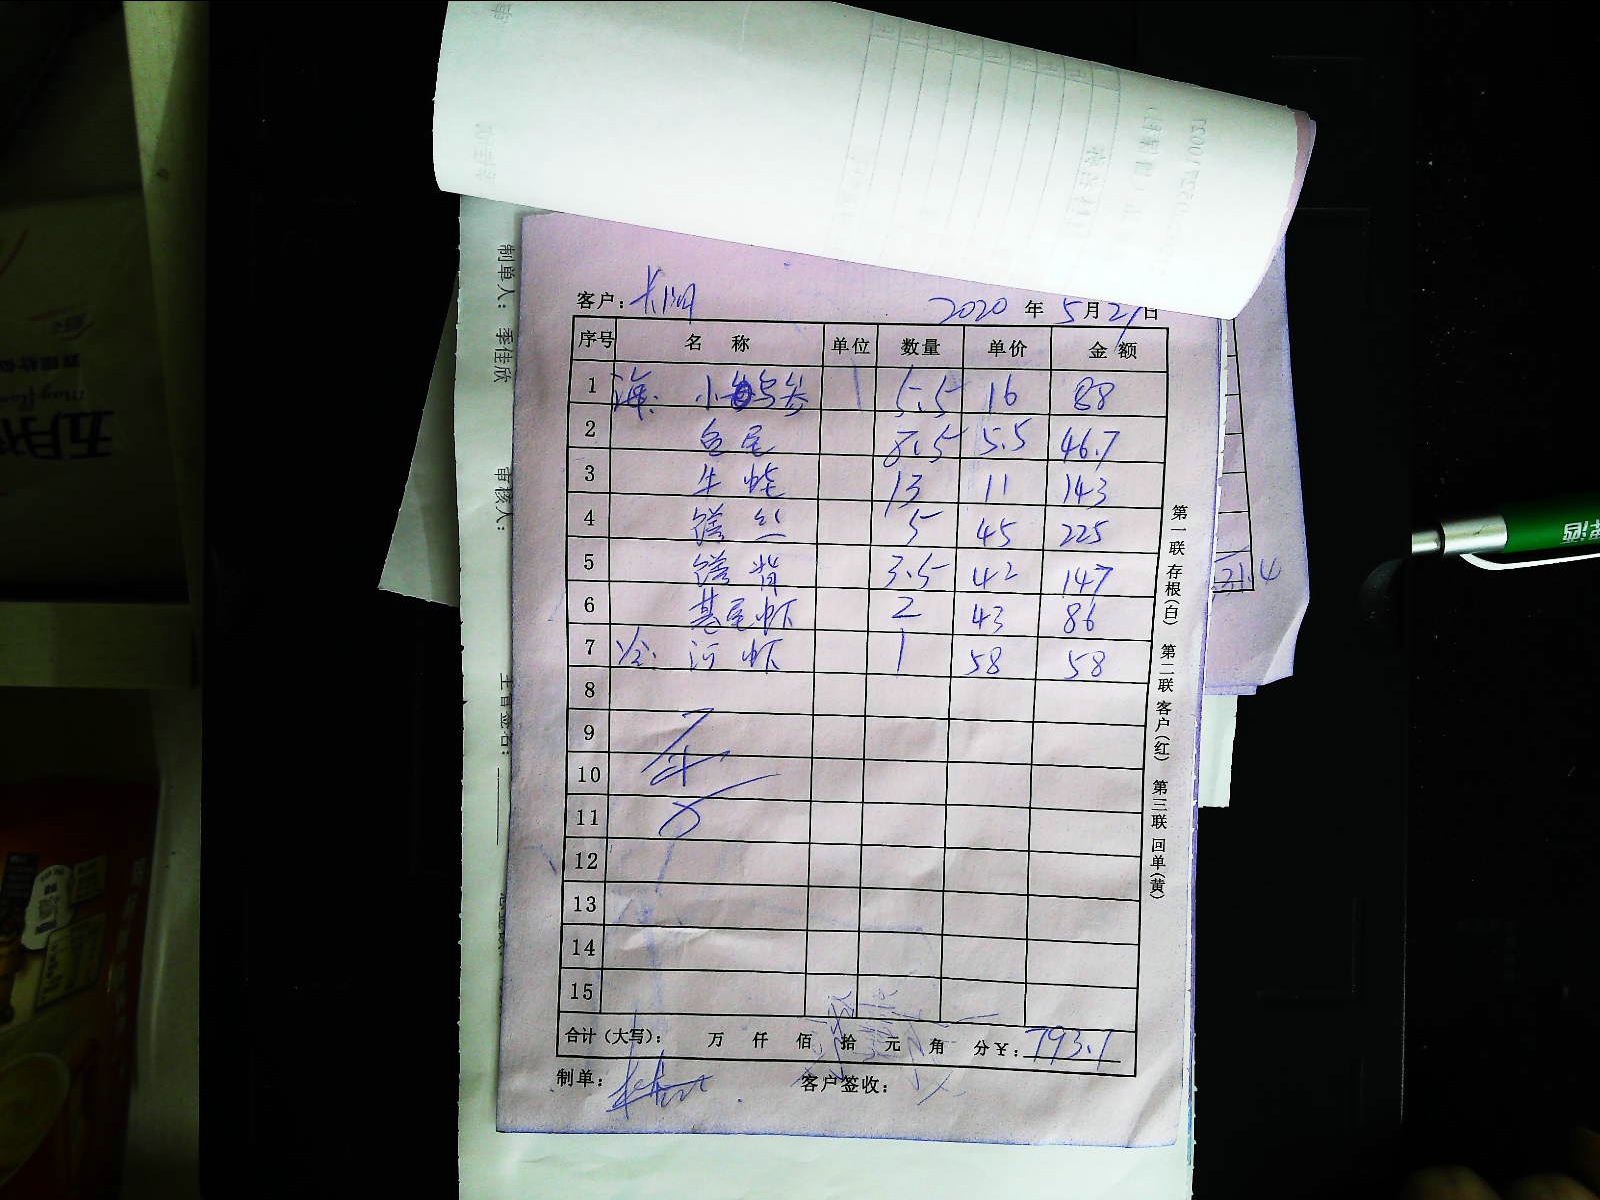 客户: 2020 年 5 月 21 日
序号 名 称 单位 数量 单价 金额
1 海: 小乌参 5.5 16 88
2 鱼尾 8.5 5.5 46.7
3 牛蛙 13 11 143
4 丝 5 45 225
5 背 3.5 42 147
6 基尾虾 2 43 86
7 冷: 河虾 1 58 58
8
9
10
11
12
13
14
15
合计(大写): 万 仟 佰 拾 元 角 分 ¥: 793.1
制单: 客户签收:
第一联 存根(白) 第二联 客户(红) 第三联 回单(黄)
制单人: 季佳欣 审核人: 主管签名:
五月花